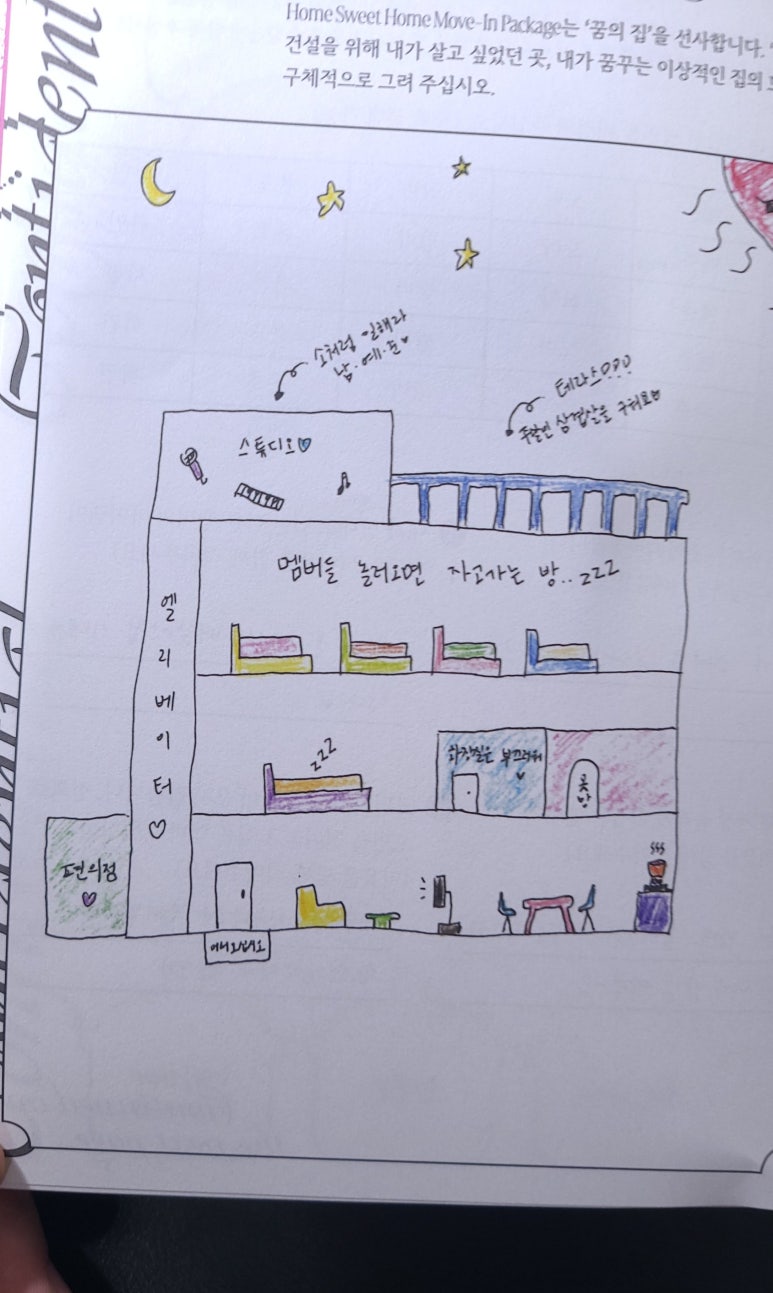 Home Sweet Home Move-In Package는 '꿈의 집'을 선사합니다.
건설을 위해 내가 살고 싶었던 곳, 내가 꿈꾸는 이상적인 집의
구체적으로 그려 주십시오.
소처럼 일해라
남·예·준♥
테라스???
주말엔 삼겹살을 구워요♥
스튜디오♡
멤버들 놀러오면 자고가는 방..zzz
엘리베이터♡
zzz
화장실은 부끄러워♥
옷방
편의점
어서오십시오